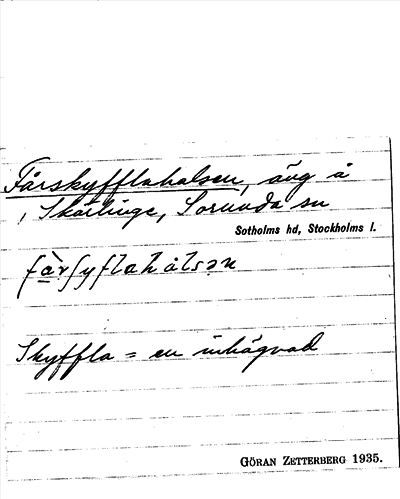 Fårskyfflahalsen, äng å
, Skärlinge, Sorunda sn
Sotholms hd, Stockholms l.
Skyffla = en inhägnad
GÖRAN ZETTERBERG 1935.